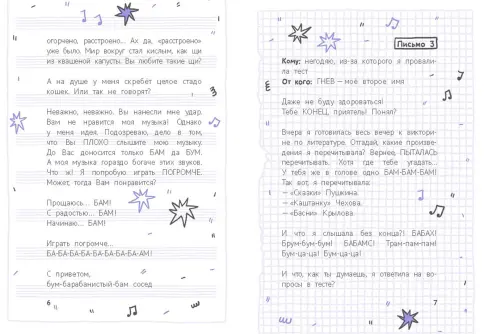 огорчено, расстроено... Ах да, «расстроено»
уже было. Мир вокруг стал кислым, как щи
из квашеной капусты. Вы любите такие щи?
А на душе у меня скребёт целое стадо
кошек. Или так не говорят?
Неважно, неважно. Вы нанесли мне удар.
Вам не нравится моя музыка! Однако
у меня идея. Подозреваю, дело в том,
что Вы ПЛОХО слышите мою музыку.
До Вас доносится только БАМ да БУМ.
А моя музыка гораздо богаче этих звуков.
Что ж! Я попробую играть ПОГРОМЧЕ.
Может, тогда Вам понравится?
Прощаюсь... БАМ!
С радостью... БАМ!
Начинаю... БАМ!
Играть погромче...
БА-БА-БА-БА-БА-БА-БА-БА-АМ!
С приветом,
бум-барабанистый-бам сосед
6
Письмо 3
Кому: негодяю, из-за которого я провали-
ла тест
От кого: ГНЕВ – моё второе имя
Даже не буду здороваться!
Тебе КОНЕЦ, приятель! Понял?
Вчера я готовилась весь вечер к виктори-
не по литературе. Отгадай, какие произве-
дения я перечитывала? Вернее, ПЫТАЛАСЬ
перечитывать. Хотя где тебе угадать...
У тебя же в голове одно БАМ-БАМ-БАМ!
Так вот, я перечитывала:
– «Сказки» Пушкина.
– «Каштанку» Чехова.
– «Басни» Крылова.
И что я слышала без конца?! БАБАХ!
Брум-бум-бум! БАБАМС! Трам-пам-пам!
Бум-ца-ца! Бум-ца-ца!
И что, как ты думаешь, я ответила на во-
просы в тесте?
7